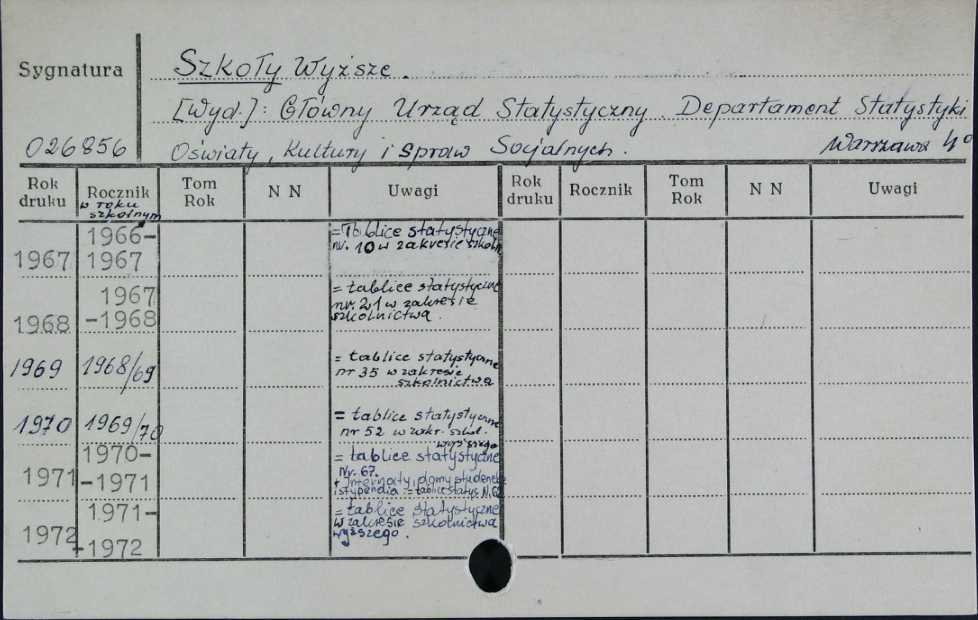 Sygnatura
Szkoły Wyższe.
[Wyd.]: Główny Urząd Statystyczny. Departament Statystyki
026856
Oświaty, Kultury i Spraw Socjalnych. Warszawa 4°
Rok druku Rocznik w roku szkolnym Tom Rok N N Uwagi Rok druku Rocznik Tom Rok N N Uwagi
1967 1966-1967 = Tablice statystyczne
nr. 10 w zakresie szkoln
1968 1967-1968 = tablice statystyczne
nr. 21 w zakresie
szkolnictwa.
1969 1968/69 = tablice statystyczne
nr 35 w zakresie
szkolnictwa
1970 1969/70 = tablice statystyczne
nr 52 w zakr. szkol.
wyższego
1971 1970-1971 = tablice statystyczne
Nr. 67.
+ Internaty, domy studenckie
i stypendia = tablice statys. N. 62
1972 1971-1972 = tablice statystyczne
w zakresie szkolnictwa
wyższego.